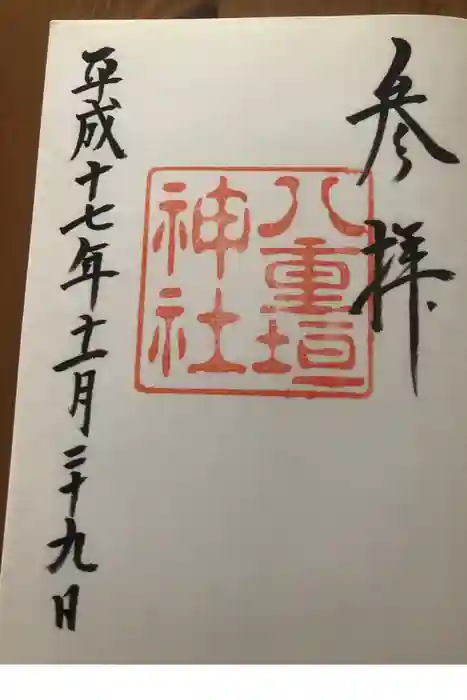 参拝
八重垣
神社
平成十七年十一月二十九日